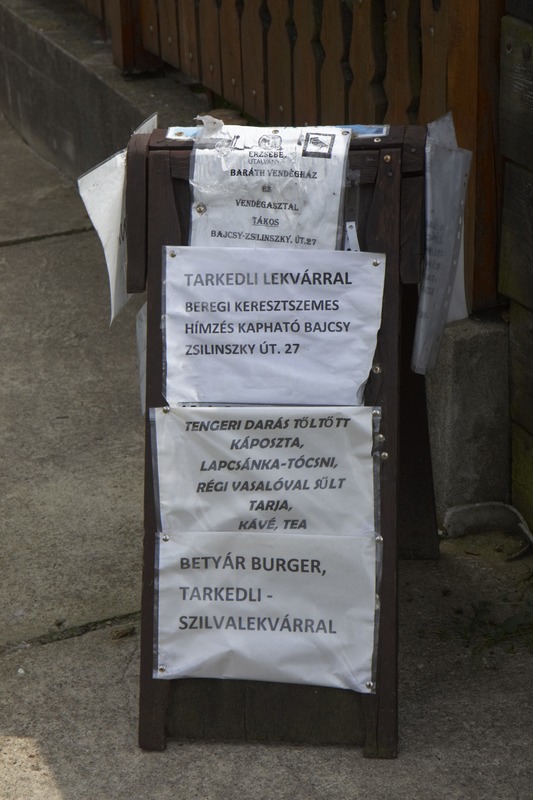 ERZSÉBE
UTALVÁNY
BARÁTH VENDÉGHÁZ
ÉS
VENDÉGASZTAL
TÁKOS
BAJCSY-ZSILINSZKY. ÚT.27
TARKEDLI LEKVÁRRAL
BEREGI KERESZTSZEMES
HÍMZÉS KAPHATÓ BAJCSY
ZSILINSZKY ÚT. 27
TENGERI DARÁS TÖLTÖTT
KÁPOSZTA,
LAPCSÁNKA-TÓCSNI,
RÉGI VASALÓVAL SÜLT
TARJA,
KÁVÉ, TEA
BETYÁR BURGER,
TARKEDLI -
SZILVALEKVÁRRAL